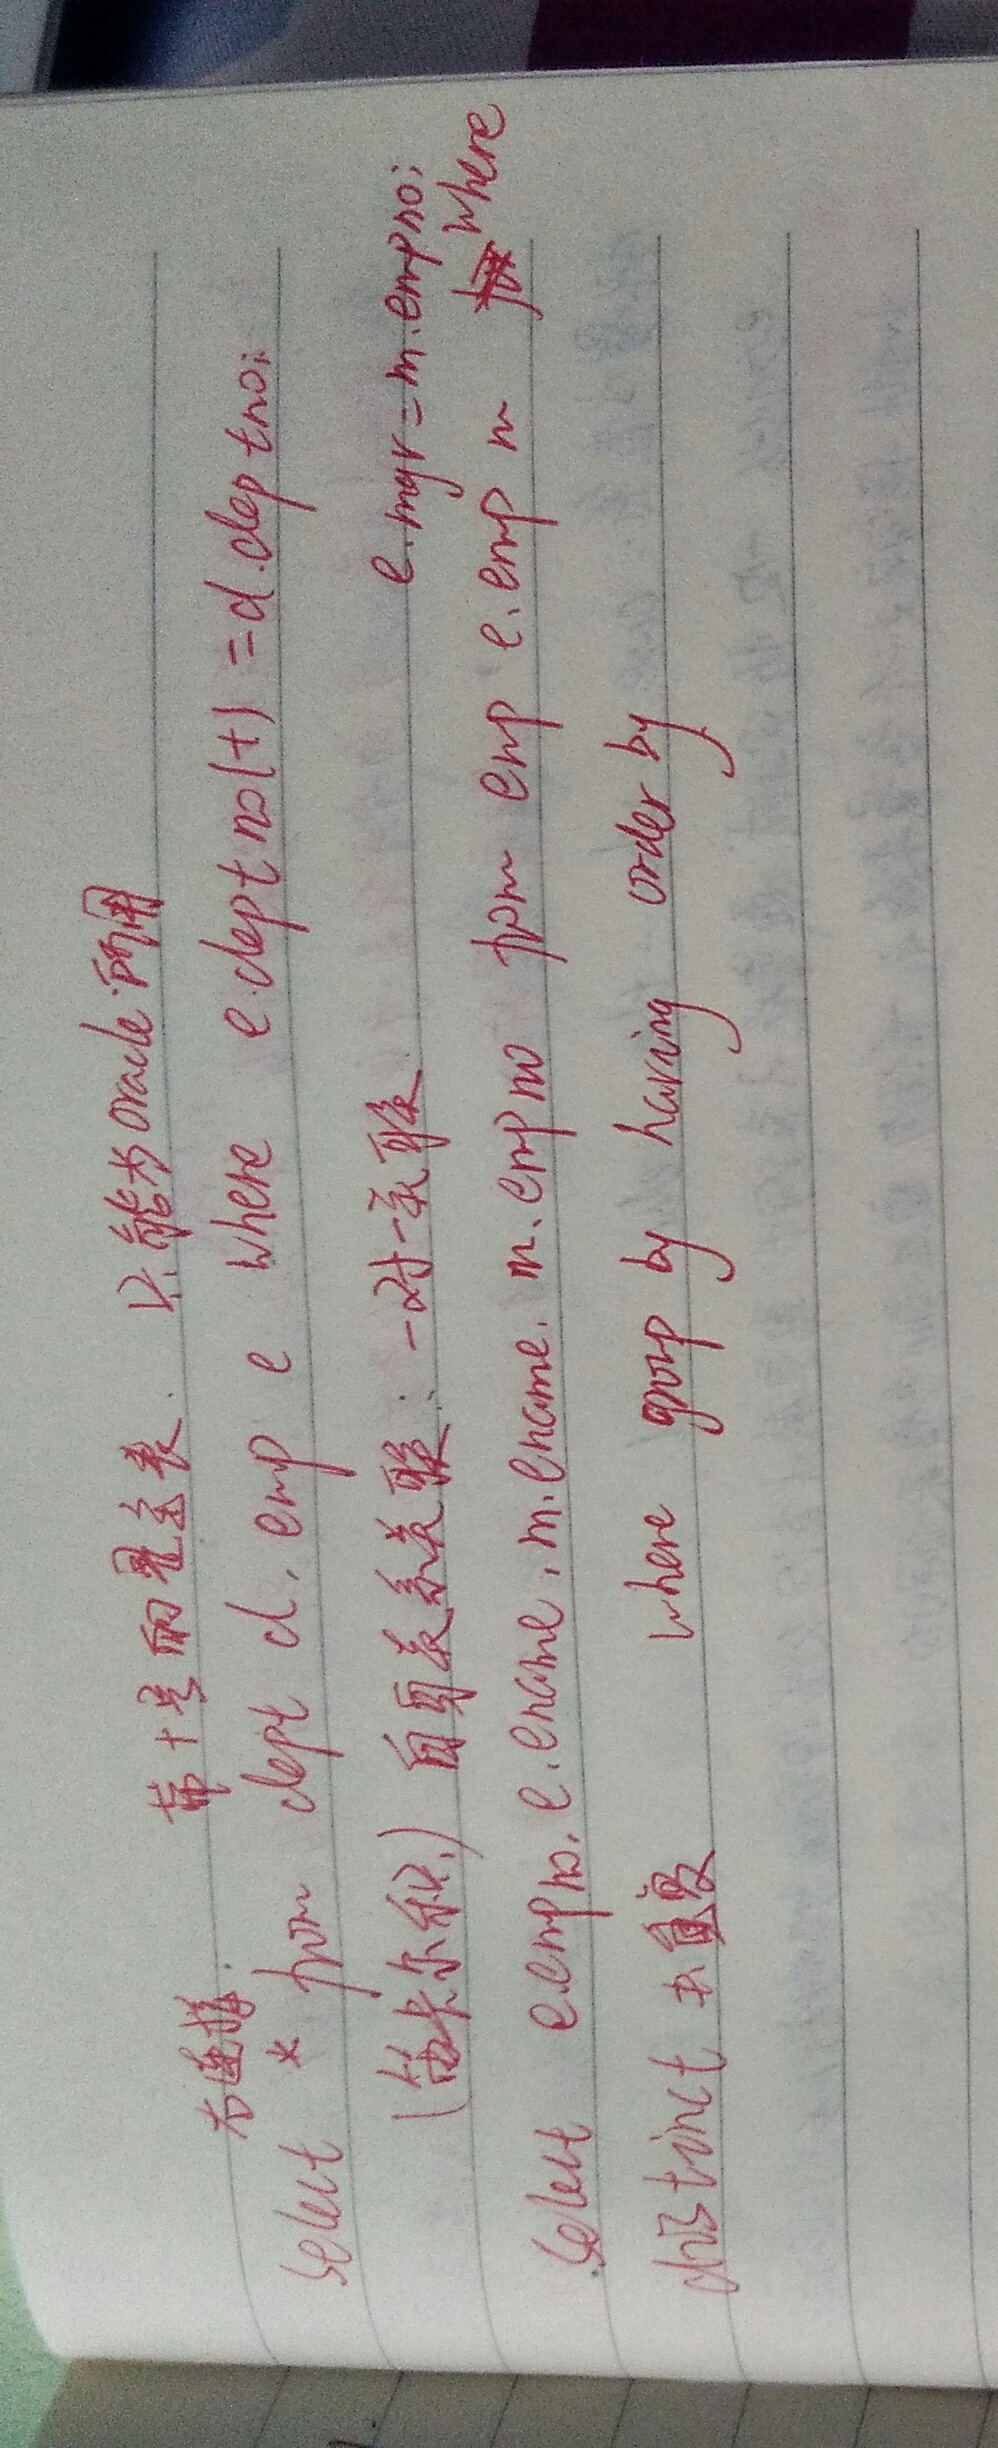 右连接: 带+号而是主表. 只能为oracle所用
select * from dept d, emp e where e.deptno(+) = d.deptno;
(笛卡尔积) 自身关系关联: 一对一关联 e.mgr = m.empno;
select e.empno, e.ename, m.ename, m.empno from emp e, emp m where
distinct 去重复 where group by having order by